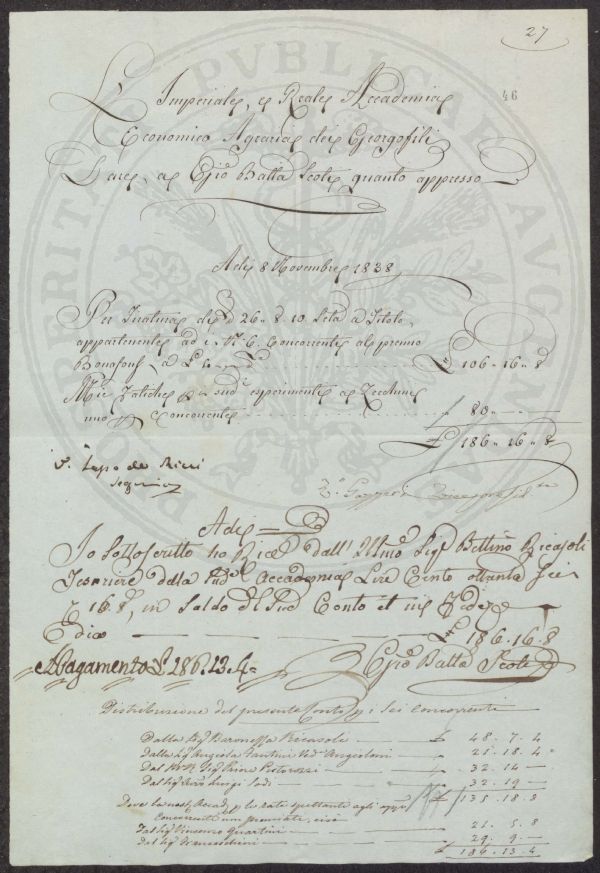 27
46
L'Imperiale, e Reale Accademia
Economico Agraria dei Georgofili
Dare, a Gio: Batta Scoti quanto appresso
Adi 8 Novembre 1838
Per Trattura di 26 " 8. 10 Seta a Titolo,
appartenente ad i N.° 6. Concorrenti al premio
Bonafous, a £ £ 106 " 16 " 8
Mie Fatiche sud.e esperimente a Zecchine
uno p concorrente £ 80 " — " —
£ 186 " 16 " 8
V.° Lapo de Ricci
Seg.rio
V.°
Adi
Io Sottoscritto ho Ric.to dall' Ill.mo Sig.r Bettino Ricasoli
Tesoriere della Sud.a Accademia Lire Cento ottanta Sei
£ 16. 8, in Saldo del Sud.o Conto et in Fede
Dico £ 186. 16. 8
Pagamento £ 186. 13. 4 =
Gio: Batta Scoti
Distribuzione del presente Conto p i Sei Concorrenti
Dalla Sig.a Baronessa Ricasoli £ 48. 7. 4
dalla Sig.a Angiola Fantini Ved.a Angioloni 21. 18. 4
Dal Sig.r Pietrozzi 32. 14 —
Dal Sig.r Luigi Sodi 32. 19 —
Deve la nost. Accad. p le rate spettante agli £ 135. 18. 8
Concorrenti non premiati, cioè
Dal Sig.r Vincenzo Quartini 21. 5. 8
dal Sig.r 29. 9. —
£ 186. 13. 4
PROSPERITATI PUBLICAE AUGENDAE